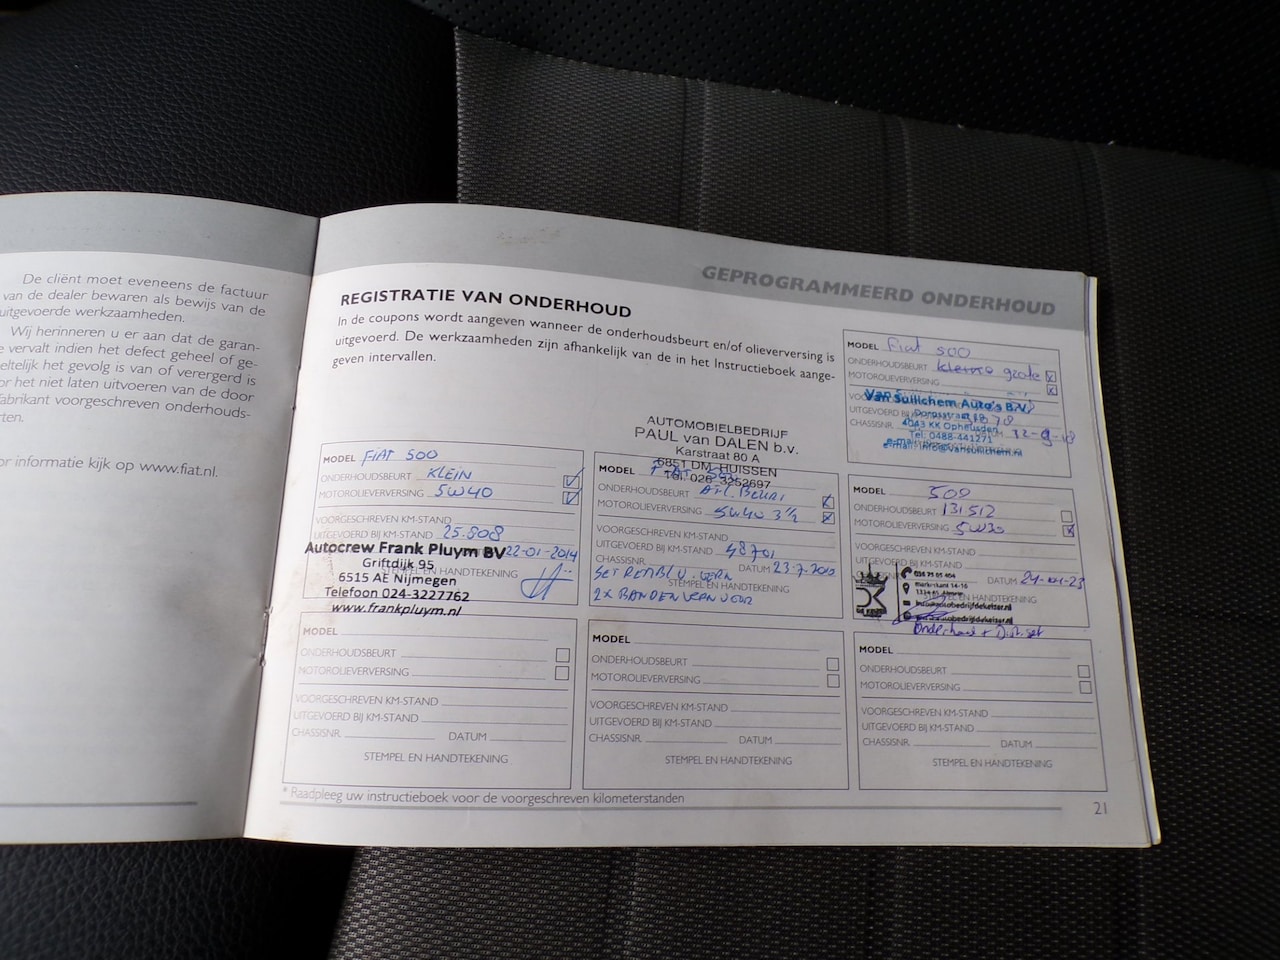 De cliënt moet eveneens de factuur
van de dealer bewaren als bewijs van de
uitgevoerde werkzaamheden.
Wij herinneren u er aan dat de garan-
e vervalt indien het defect geheel of ge-
eltelijk het gevolg is van of verergerd is
or het niet laten uitvoeren van de door
fabrikant voorgeschreven onderhouds-
rten.
or informatie kijk op www.fiat.nl.
GEPROGRAMMEERD ONDERHOUD
REGISTRATIE VAN ONDERHOUD
In de coupons wordt aangeven wanneer de onderhoudsbeurt en/of olieverversing is
uitgevoerd. De werkzaamheden zijn afhankelijk van de in het Instructieboek aange-
geven intervallen.
MODEL Fiat 500
ONDERHOUDSBEURT grote
MOTOROLIEVERVERSING
Van Sullichem Auto's B.V.
Dorpsstraat
4043 KK Opheusden
Tel: 0488-441271
e-mail: info@vansullichem.nl
UITGEVOERD BIJ
CHASSISNR.
MODEL FIAT 500
ONDERHOUDSBEURT KLEIN
MOTOROLIEVERVERSING 5W40
VOORGESCHREVEN KM-STAND
UITGEVOERD BIJ KM-STAND 25.808
22-01-2014
STEMPEL EN HANDTEKENING
Autocrew Frank Pluym BV
Griftdijk 95
6515 AE Nijmegen
Telefoon 024-3227762
www.frankpluym.nl
AUTOMOBIELBEDRIJF
PAUL van DALEN b.v.
Karstraat 80 A
6851 DM HUISSEN
Tel. 026-3252697
MODEL
ONDERHOUDSBEURT
MOTOROLIEVERVERSING 5W40 3½
VOORGESCHREVEN KM-STAND
UITGEVOERD BIJ KM-STAND 48701
CHASSISNR. DATUM
STEMPEL EN HANDTEKENING
2X BANDEN VERN VOOR
MODEL 500
ONDERHOUDSBEURT 131512
MOTOROLIEVERVERSING 5W30
VOORGESCHREVEN KM-STAND
DATUM
STEMPEL EN HANDTEKENING
MODEL
ONDERHOUDSBEURT
MOTOROLIEVERVERSING
VOORGESCHREVEN KM-STAND
UITGEVOERD BIJ KM-STAND
CHASSISNR. DATUM
STEMPEL EN HANDTEKENING
MODEL
ONDERHOUDSBEURT
MOTOROLIEVERVERSING
VOORGESCHREVEN KM-STAND
UITGEVOERD BIJ KM-STAND
CHASSISNR. DATUM
STEMPEL EN HANDTEKENING
MODEL
ONDERHOUDSBEURT
MOTOROLIEVERVERSING
VOORGESCHREVEN KM-STAND
UITGEVOERD BIJ KM-STAND
CHASSISNR. DATUM
STEMPEL EN HANDTEKENING
* Raadpleeg uw instructieboek voor de voorgeschreven kilometerstanden
21